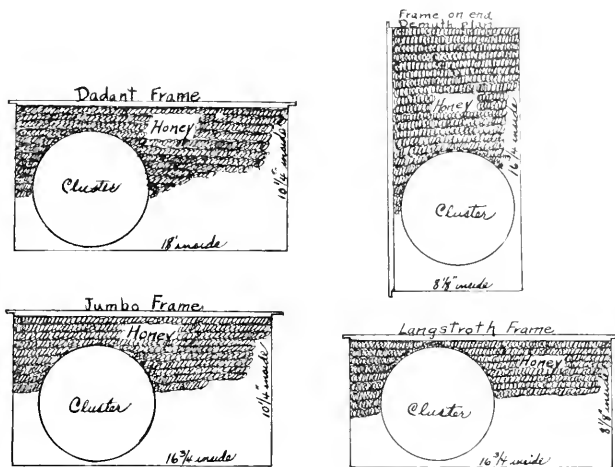 Dadant Frame
Honey
Cluster
10¼" inside
18' inside
Frame on end
Demuth plan
Honey
16¾ inside
Cluster
8⅛" inside
Jumbo Frame
Honey
Cluster
10¼" inside
16¾ inside
Langstroth Frame
Honey
Cluster
8⅛" inside
16¾ inside